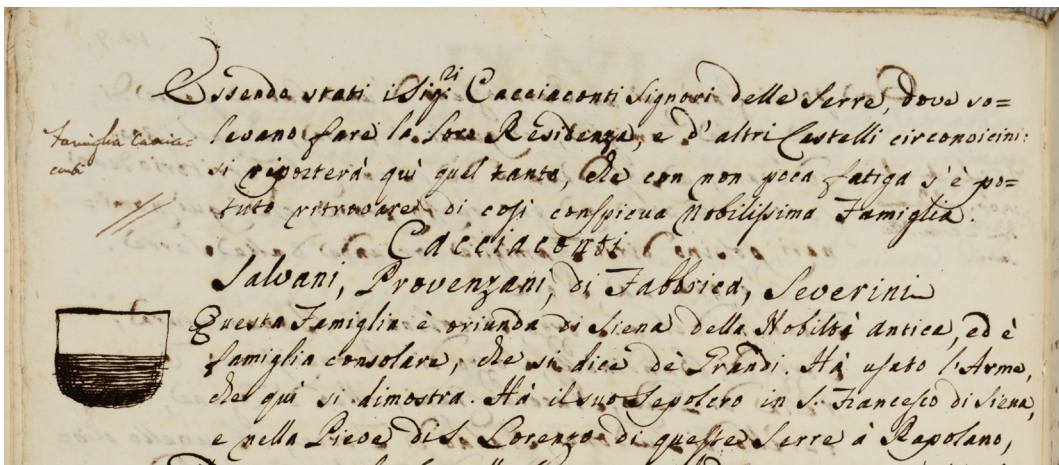 Essendo stati i Sig.ri Cacciaconti Signori delle Serre, dove so=
Famiglia Caccia=
conti
levano fare la loro Residenza, e d' altri Castelli circonvicini:
si riporterà quì quel tanto, che con non poca fatiga s' è po=
tuto ritrovare di così conspicua Nobilissima Famiglia.
Cacciaconti
Salvani, Provenzani, di Fabbrica, Severini
Questa Famiglia è oriunda di Siena della Nobiltà antica, ed è
famiglia consolare, che si dice dè Grandi. Hà usato l'Arme,
che quì si dimostra. Hà il suo Sepolcro in S. Francesco di Siena,
e nella Pieve di S. Lorenzo di queste Serre à Rapolano,